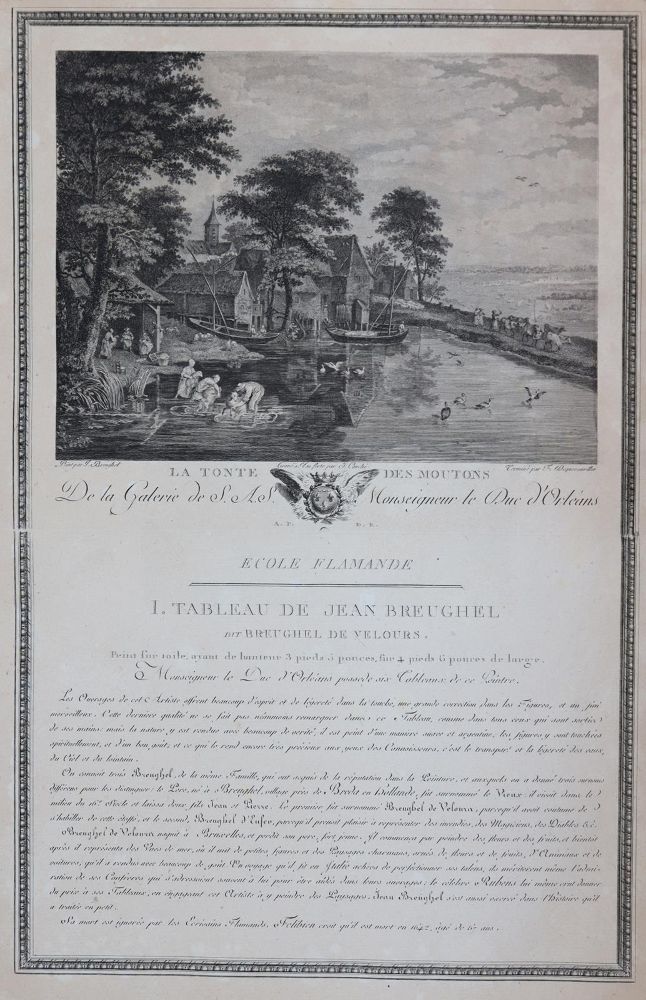 Peint par J. Breughel
Gravé à l'eau forte par
Terminé par
LA TONTE DES MOUTONS
De la Galerie de S. A. S. Monseigneur le Duc d'Orléans
A. P. D. R.
ECOLE FLAMANDE
I. TABLEAU DE JEAN BREUGHEL
DIT BREUGHEL DE VELOURS.
Peint sur toile, ayant de hauteur 3 pieds 5 pouces, sur 4 pieds 6 pouces de large.
Monseigneur le Duc d'Orléans possede six Tableaux de ce Peintre.
Les Ouvrages de cet Artiste offrent beaucoup d'esprit et de légereté dans la touche, une grande correction dans les Figures, et un fini
merveilleux. Cette derniere qualité ne se fait pas néanmoins remarquer dans ce Tableau, comme dans tous ceux qui sont sortis
de ses mains; mais la nature y est rendue avec beaucoup de verité, il est peint d'une maniere suave et argentine, les figures y sont touchées
spirituellement, et d'un bon goût; et ce qui le rend encore très précieux aux yeux des Connaisseurs, c'est le transpar.t et la légereté des eaux,
du Ciel et du lointain.
On connoit trois Breughel, de la même Famille, qui ont acquis de la réputation dans la Peinture, et auxquels on a donné trois surnoms
différens pour les distinguer: le Pere, né à Breughel, village près de Breda en Hollande, fut surnommé le Vieux: il vivoit dans le
milieu du 16.e Siecle et laissa deux fils Jean et Pierre. le premier fut surnommé Breughel de Velours, parcequ'il avoit coutume de
s'habiller de cette étoffe, et le second, Breughel d'Enfer, parcequ'il prenoit plaisir à représenter des incendies, des Magiciens, des Diables &c.
Breughel de Velours naquit à Bruxelles, et perdit son pere, fort jeune. Il commença par peindre des fleurs et des fruits, et bientôt
après il représenta des Vues de mer, où il mit de petites figures et des Paysages charmans, ornés de fleurs et de fruits, d'Animaux et de
voitures, qu'il a rendus avec beaucoup de goût. Un voyage qu'il fit en Italie acheva de perfectionner ses talens, ils méritèrent même l'admi-
ration de ses Confreres qui s'adressoient souvent à lui pour être aidés dans leurs ouvrages; le célebre Rubens lui même crut donner
du prix à ses Tableaux, en engageant cet Artiste à y peindre des Paysages. Jean Breughel s'est aussi exercé dans l'histoire qu'il
a traitée en petit.
Sa mort est ignorée par les Ecrivains Flamands. Félibien croit qu'il est mort en 1642, agé de 67 ans.